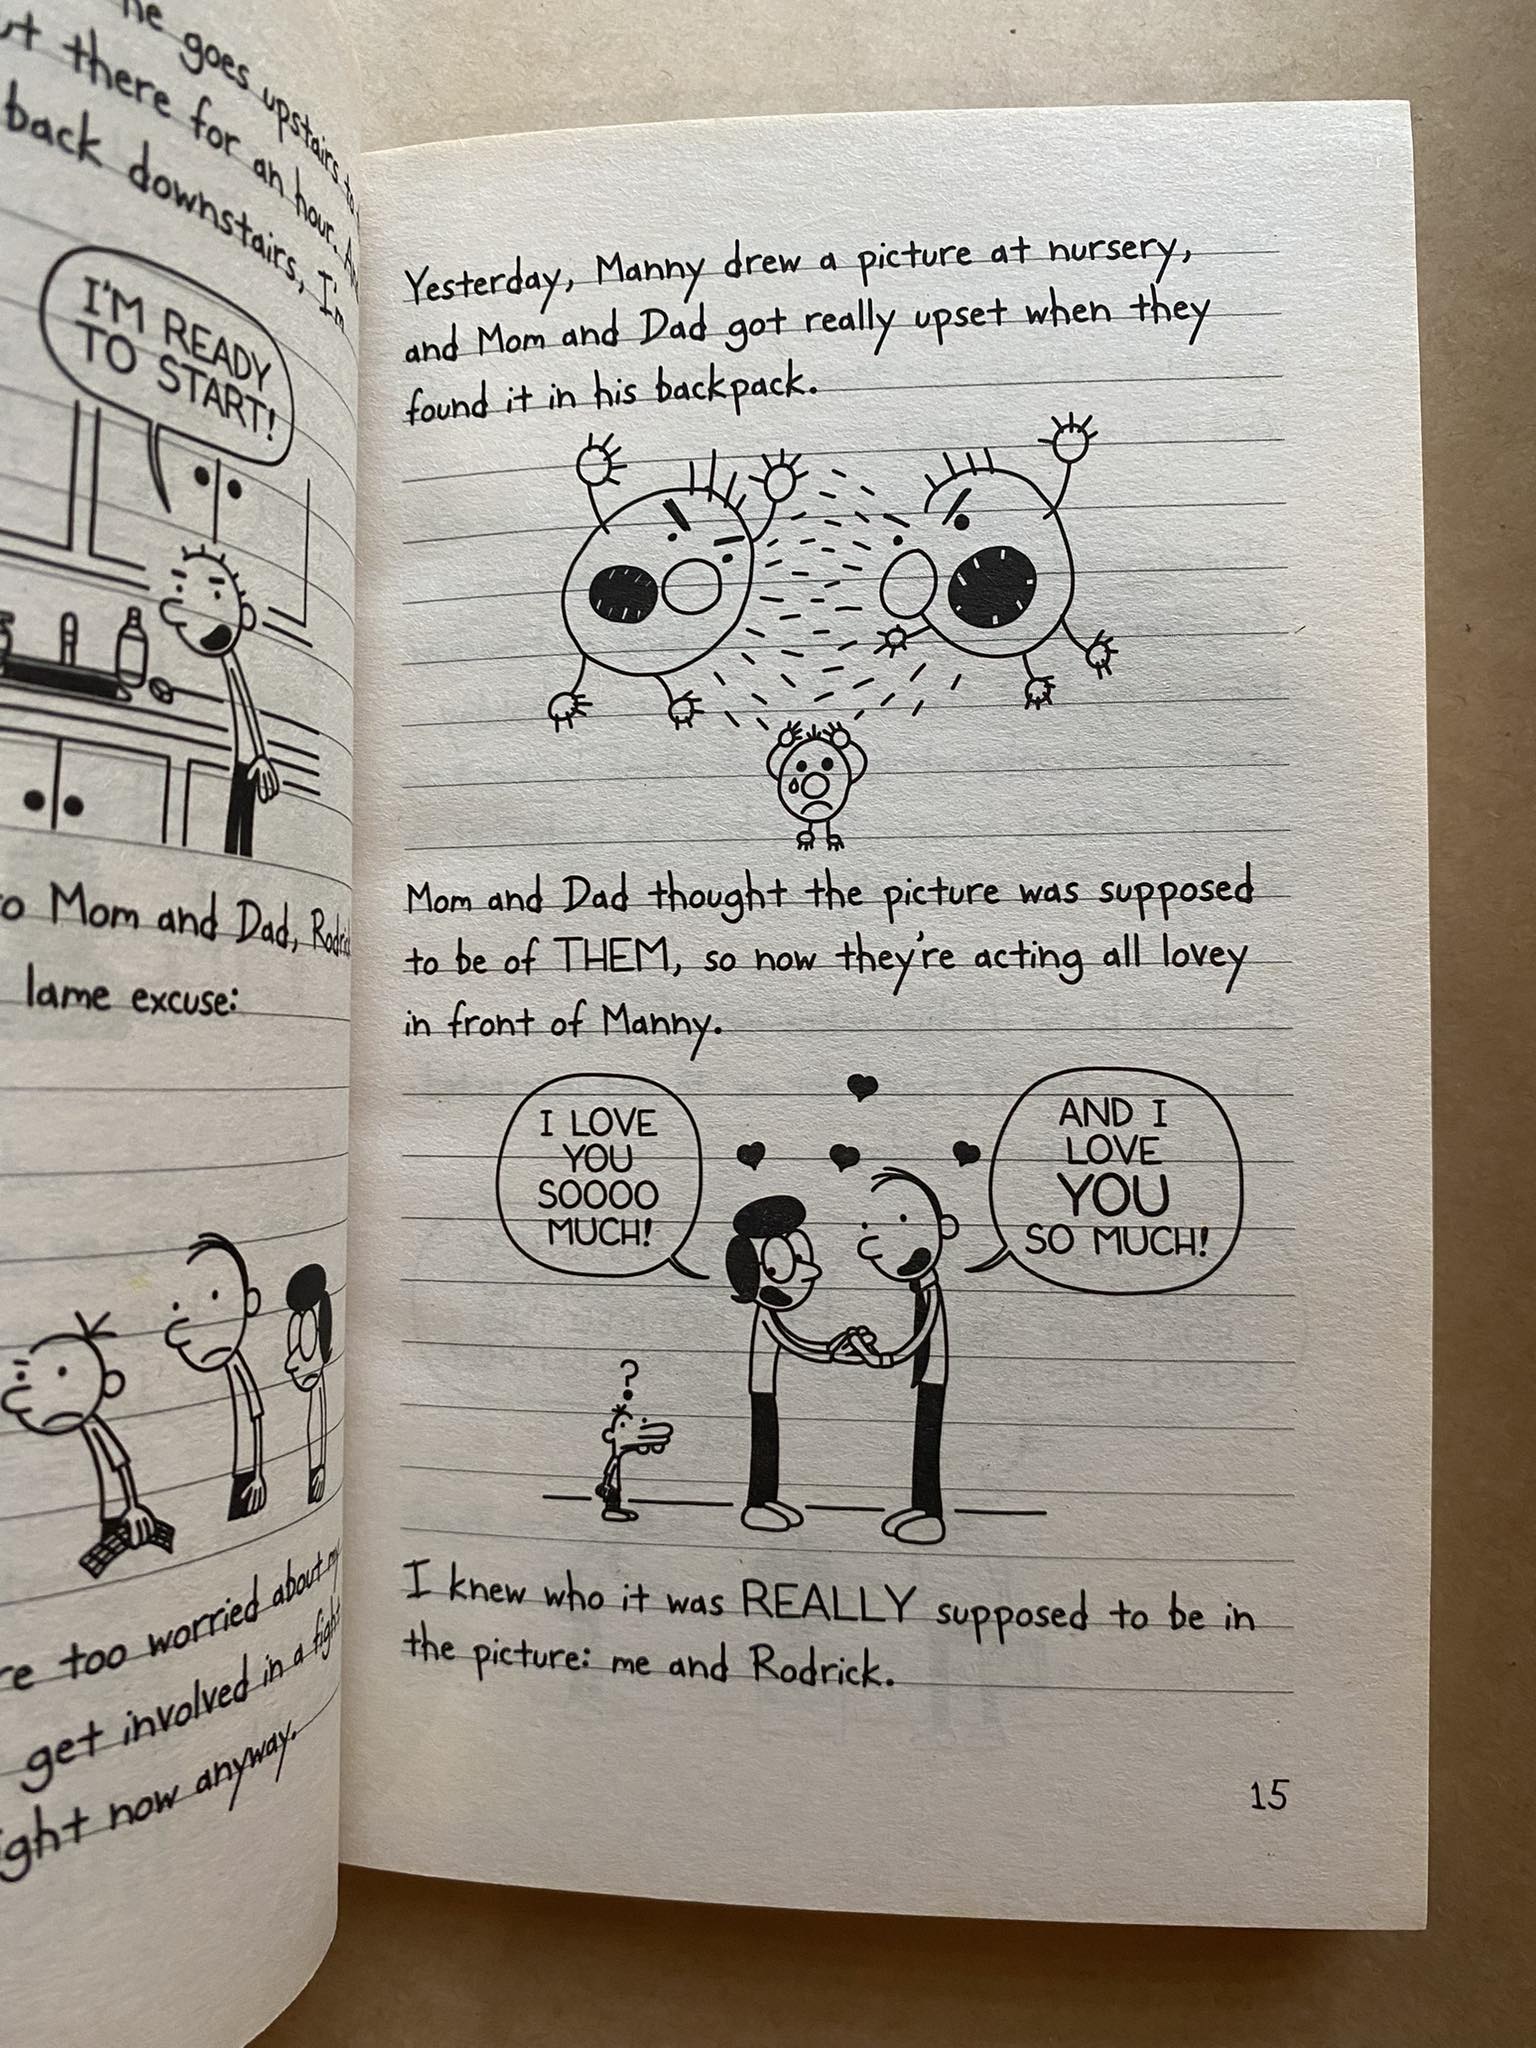 goes upstairs to
there for an hour.
back downstairs, I'm
I'M READY
TO START!
Mom and Dad, Rodrick
lame excuse:
too worried about my
get involved in a fight
now anyway.
Yesterday, Manny drew a picture at nursery,
and Mom and Dad got really upset when they
found it in his backpack.
Mom and Dad thought the picture was supposed
to be of THEM, so now they're acting all lovey
in front of Manny.
I LOVE
YOU
SOOOO
MUCH!
AND I
LOVE
YOU
SO MUCH!
?
I knew who it was REALLY supposed to be in
the picture: me and Rodrick.
15